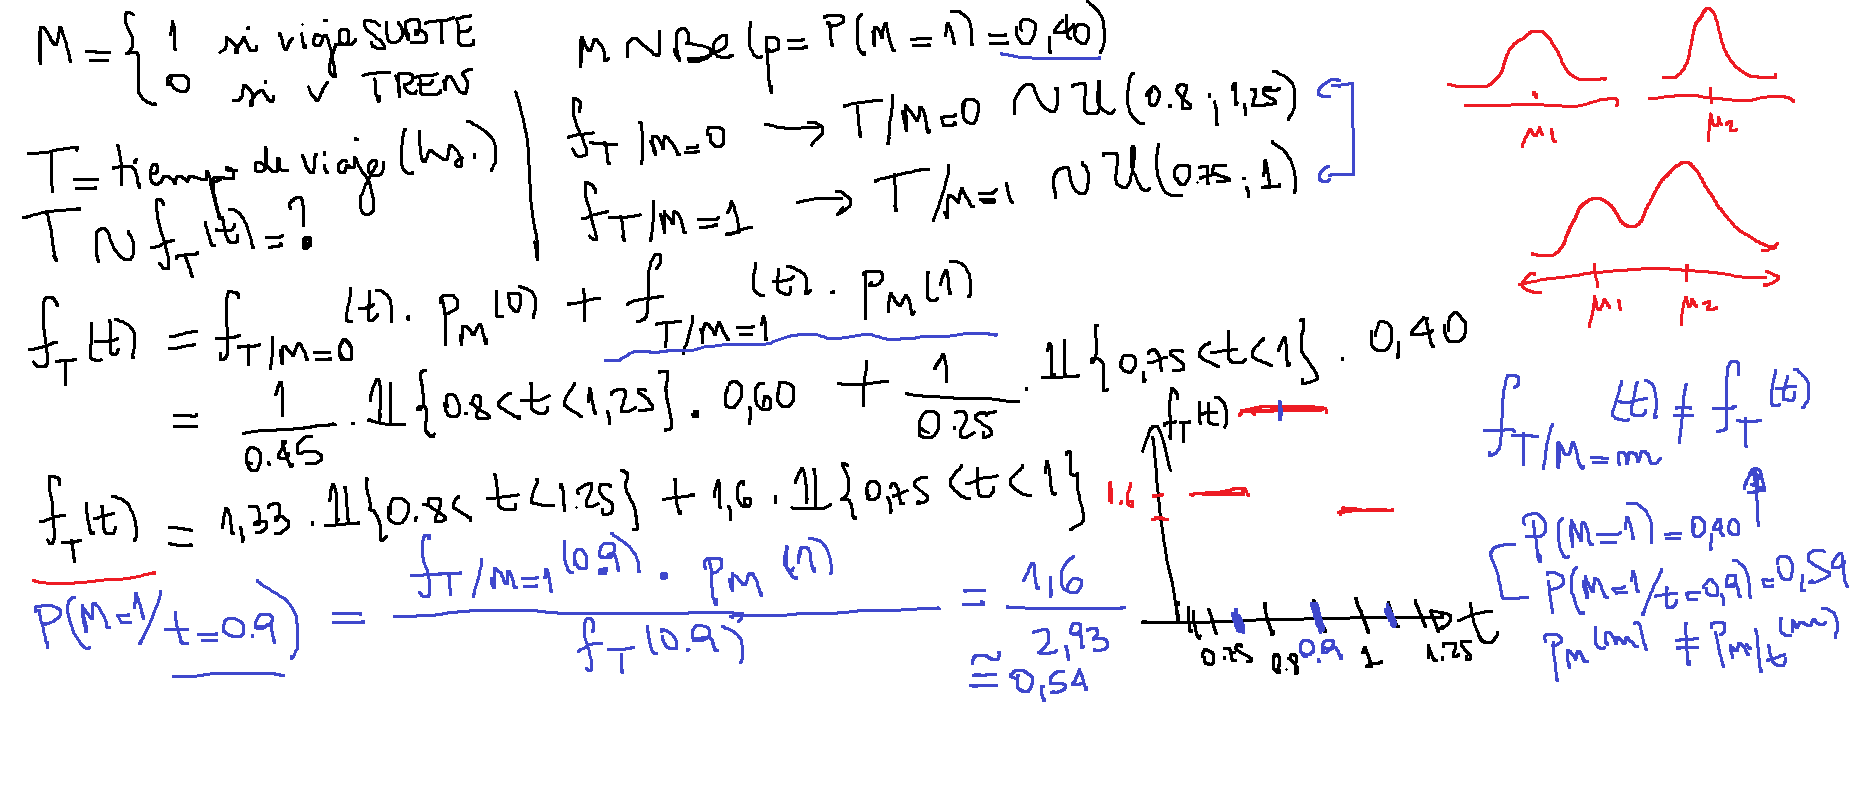 M = { 1 si viaje SUBTE
0 si v TREN
T = tiempo de viaje (hs.)
T ~ f_T(t) = ?
M ~ Be (p = P(M = 1) = 0,40)
f_T/M=0 → T/M=0 ~ U(0.8 ; 1,25)
f_T/M=1 → T/M=1 ~ U(0.75 ; 1)
f_T(t) = f_T/M=0 (t) . P_M(0) + f_T/M=1 (t) . P_M(1)
= 1/0.45 . 1{0.8<t<1,25} . 0,60 + 1/0.25 . 1{0,75<t<1} . 0,40
f_T(t) = 1,33 . 1{0.8< t<1.25} + 1,6 . 1{0,75<t<1}
P(M=1/t=0.9) = f_T/M=1(0.9) . P_M(1) / f_T(0.9) = 1,6 / 2,93
≅ 0,54
f_T(t)
1.6
0.75 0.8 0.9 1 1.25 t
μ1 μ2
μ1 μ2
f_T/M=m (t) ≠ f_T(t)
P(M=1) = 0,40
P(M=1/t=0,9) = 0,54
P_M(m) ≠ P_M/t(m)